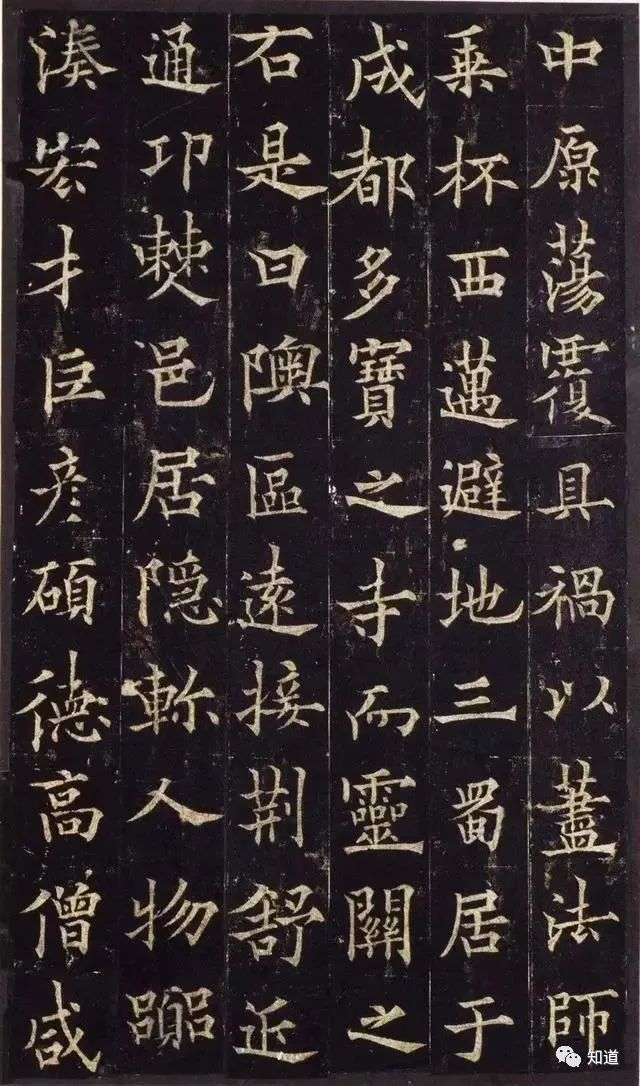 中原蕩覆具禍以藎法師
乗杯西邁避地三蜀居于
成都多寶之寺而靈關之
右是曰隩區遠接荆舒近
通邛僰邑居隱軫人物嚻
湊宏才巨彦碩德高僧咸
知道